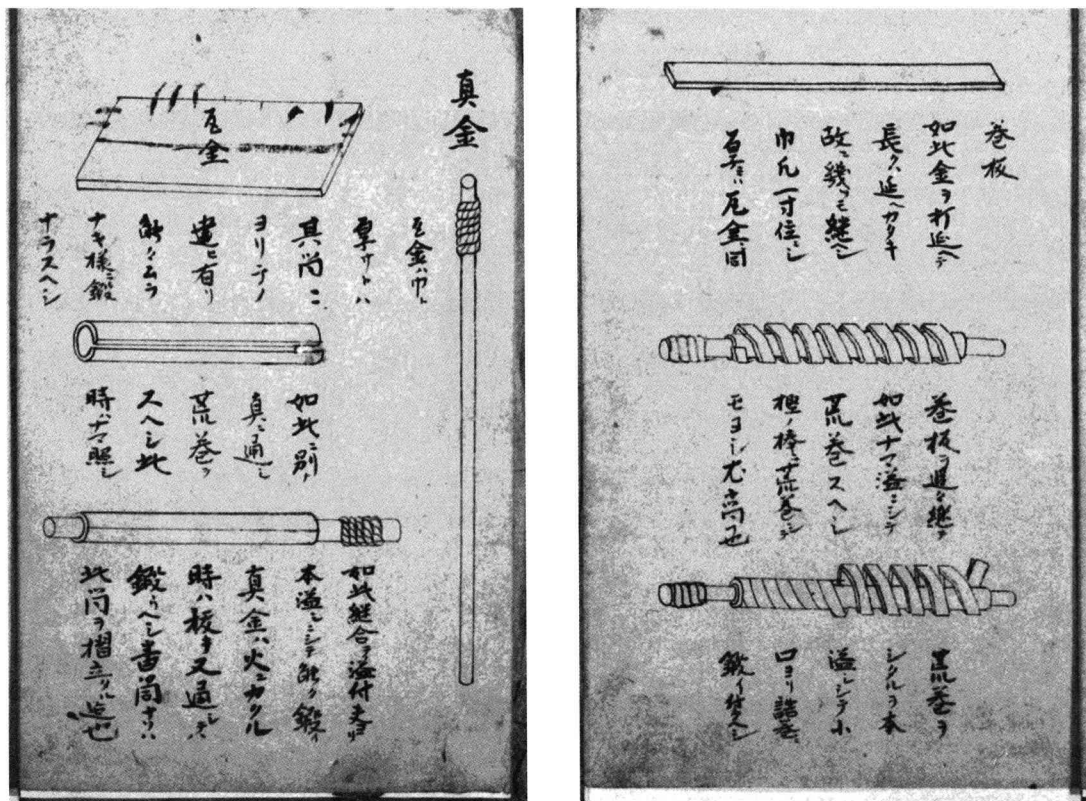 真金
瓦金
瓦金ハ巾ト
厚サトハ
其筒ニ
ヨリテノ
違ヒ有リ
能クムラ
ナキ様ニ鍛
ナラスヘシ
如此ニ別ノ
真ニ通シ
荒巻ヲ
スヘシ此
時ハナマ
如此継合ヲ溢付夫ヨリ
本溢ニシテ能ク鍛ヘ
真金ハ火ニカクル
時ハ抜キ又通シテ
鍛フヘシ
此筒ヲ摺立タル迄也
巻板
如此金ヲ打延ヘテ
長ク延ヘカタキ
故ニ幾ツモ継ヘシ
巾凡一寸位ニシ
厚サハ瓦金ニ同
巻板ヲ段々継テ
如此ナマ溢ニシテ
荒巻スヘシ
樫ノ棒ニ荒巻シテ
モヨシ尤大筒也
荒巻ヲ
シタルヲ本
溢ニシテ小
口ヨリ詰巻ニ
鍛イ付ヘシ